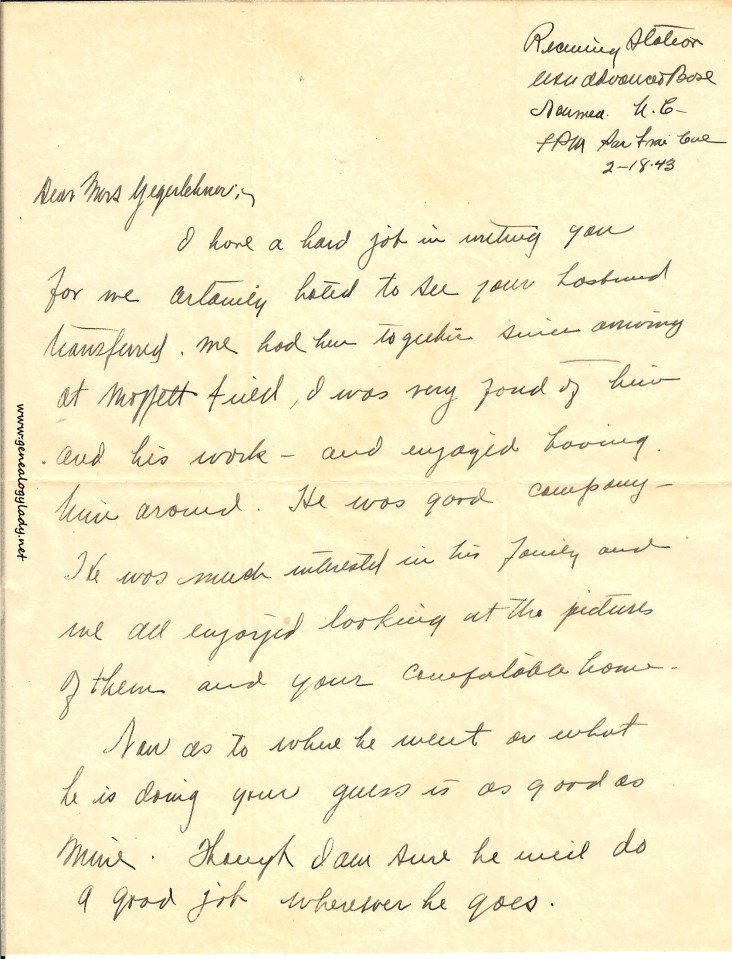 Receiving Station
USN Advanced Base
Noumea. N. C-
FPM San Fran Cal
2-18-43
Dear Mrs Yegerlehner:,
I have a hard job in writing you
for we certainly hated to see your husband
transferred. We had been together since arriving
at Moffett Field, I was very fond of him
and his work - and enjoyed having
him around. He was good company -
He was much interested in his family and
we all enjoyed looking at the pictures
of them and your comfortable home.
Now as to where he went or what
he is doing your guess is as good as
mine. Though I am sure he will do
a good job wherever he goes.
www.genealogylady.net